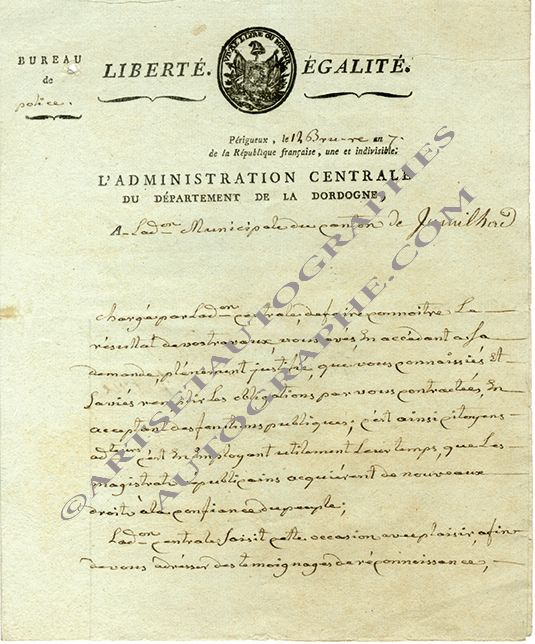 BUREAU
de
police.
LIBERTÉ. ÉGALITÉ.
VIVRE LIBRE OU MOURIR
Périgueux, le 12 Bru-re an 7.
de la République française, une et indivisible.
L'ADMINISTRATION CENTRALE
DU DÉPARTEMENT DE LA DORDOGNE,
A Lad.on Municipale du canton de Jumilhac
chargés par Lad.on centrale, de faire connoitre Le
résultat de vos travaux vous avés, En accédant a Sa
demande, plénement justifié, que vous connaissiés Et
Saviés remplir Les obligations par vous contractées, En
acceptant des fonctions publiques; c'est ainsi citoyens
c'est En Employant utilement Leur temps, que Les
magistrats républicains acquièrent de nouveaux
droits à la confiance du peuple;
Lad.on centrale Saisit cette occasion avec plaisir, afin
de vous adresser des témoignages de réconnoissance,
©ARTSETAUTOGRAPHES
AUTOGRAPHE.COM